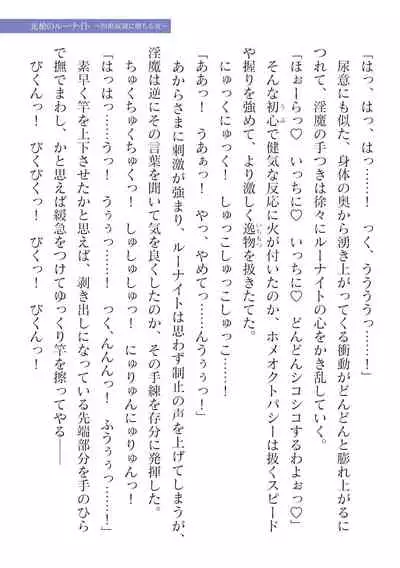 光槍のルーナイト
「はっ、はっ、はっ……！　っく、うううっ……！」
　尿意にも似た、身体の奥から湧き上がってくる衝動がどんどんと膨れ上がるに
つれて、淫魔の手つきは徐々にルーナイトの心をかき乱していく。
「ほぉーらっ♡　いっちに♡　いっちに♡　どんどんシコシコするわよぉっ♡」
　そんな初心で健気な反応に火が付いたのか、ホメオクトパシーは扱くスピード
や握りを強めて、より激しく逸物を扱きたてた。
　にゅっくにゅっく！　しゅっこしゅっこ……！
「ああっ！　うあぁっ！　やっ、やめてっ……んうぅっ！」
　あからさまに刺激が強まり、ルーナイトは思わず制止の声を上げてしまうが、
淫魔は逆にその言葉を聞いて気を良くしたのか、その手練を存分に発揮した。
　ちゅくちゅくちゅくっ！　しゅしゅしゅっ！　にゅりゅんにゅりゅんっ！
「はっはっ……うっ！　うぅぅっ……！　っく、んんんっ！　ふうぅぅっ……！」
　素早く竿を上下させたかと思えば、剥き出しになっている先端部分を手のひら
で撫でまわし、かと思えば緩急をつけてゆっくり竿を擦ってやる――
　びくんっ！　びくびくっ！　びくんっ！